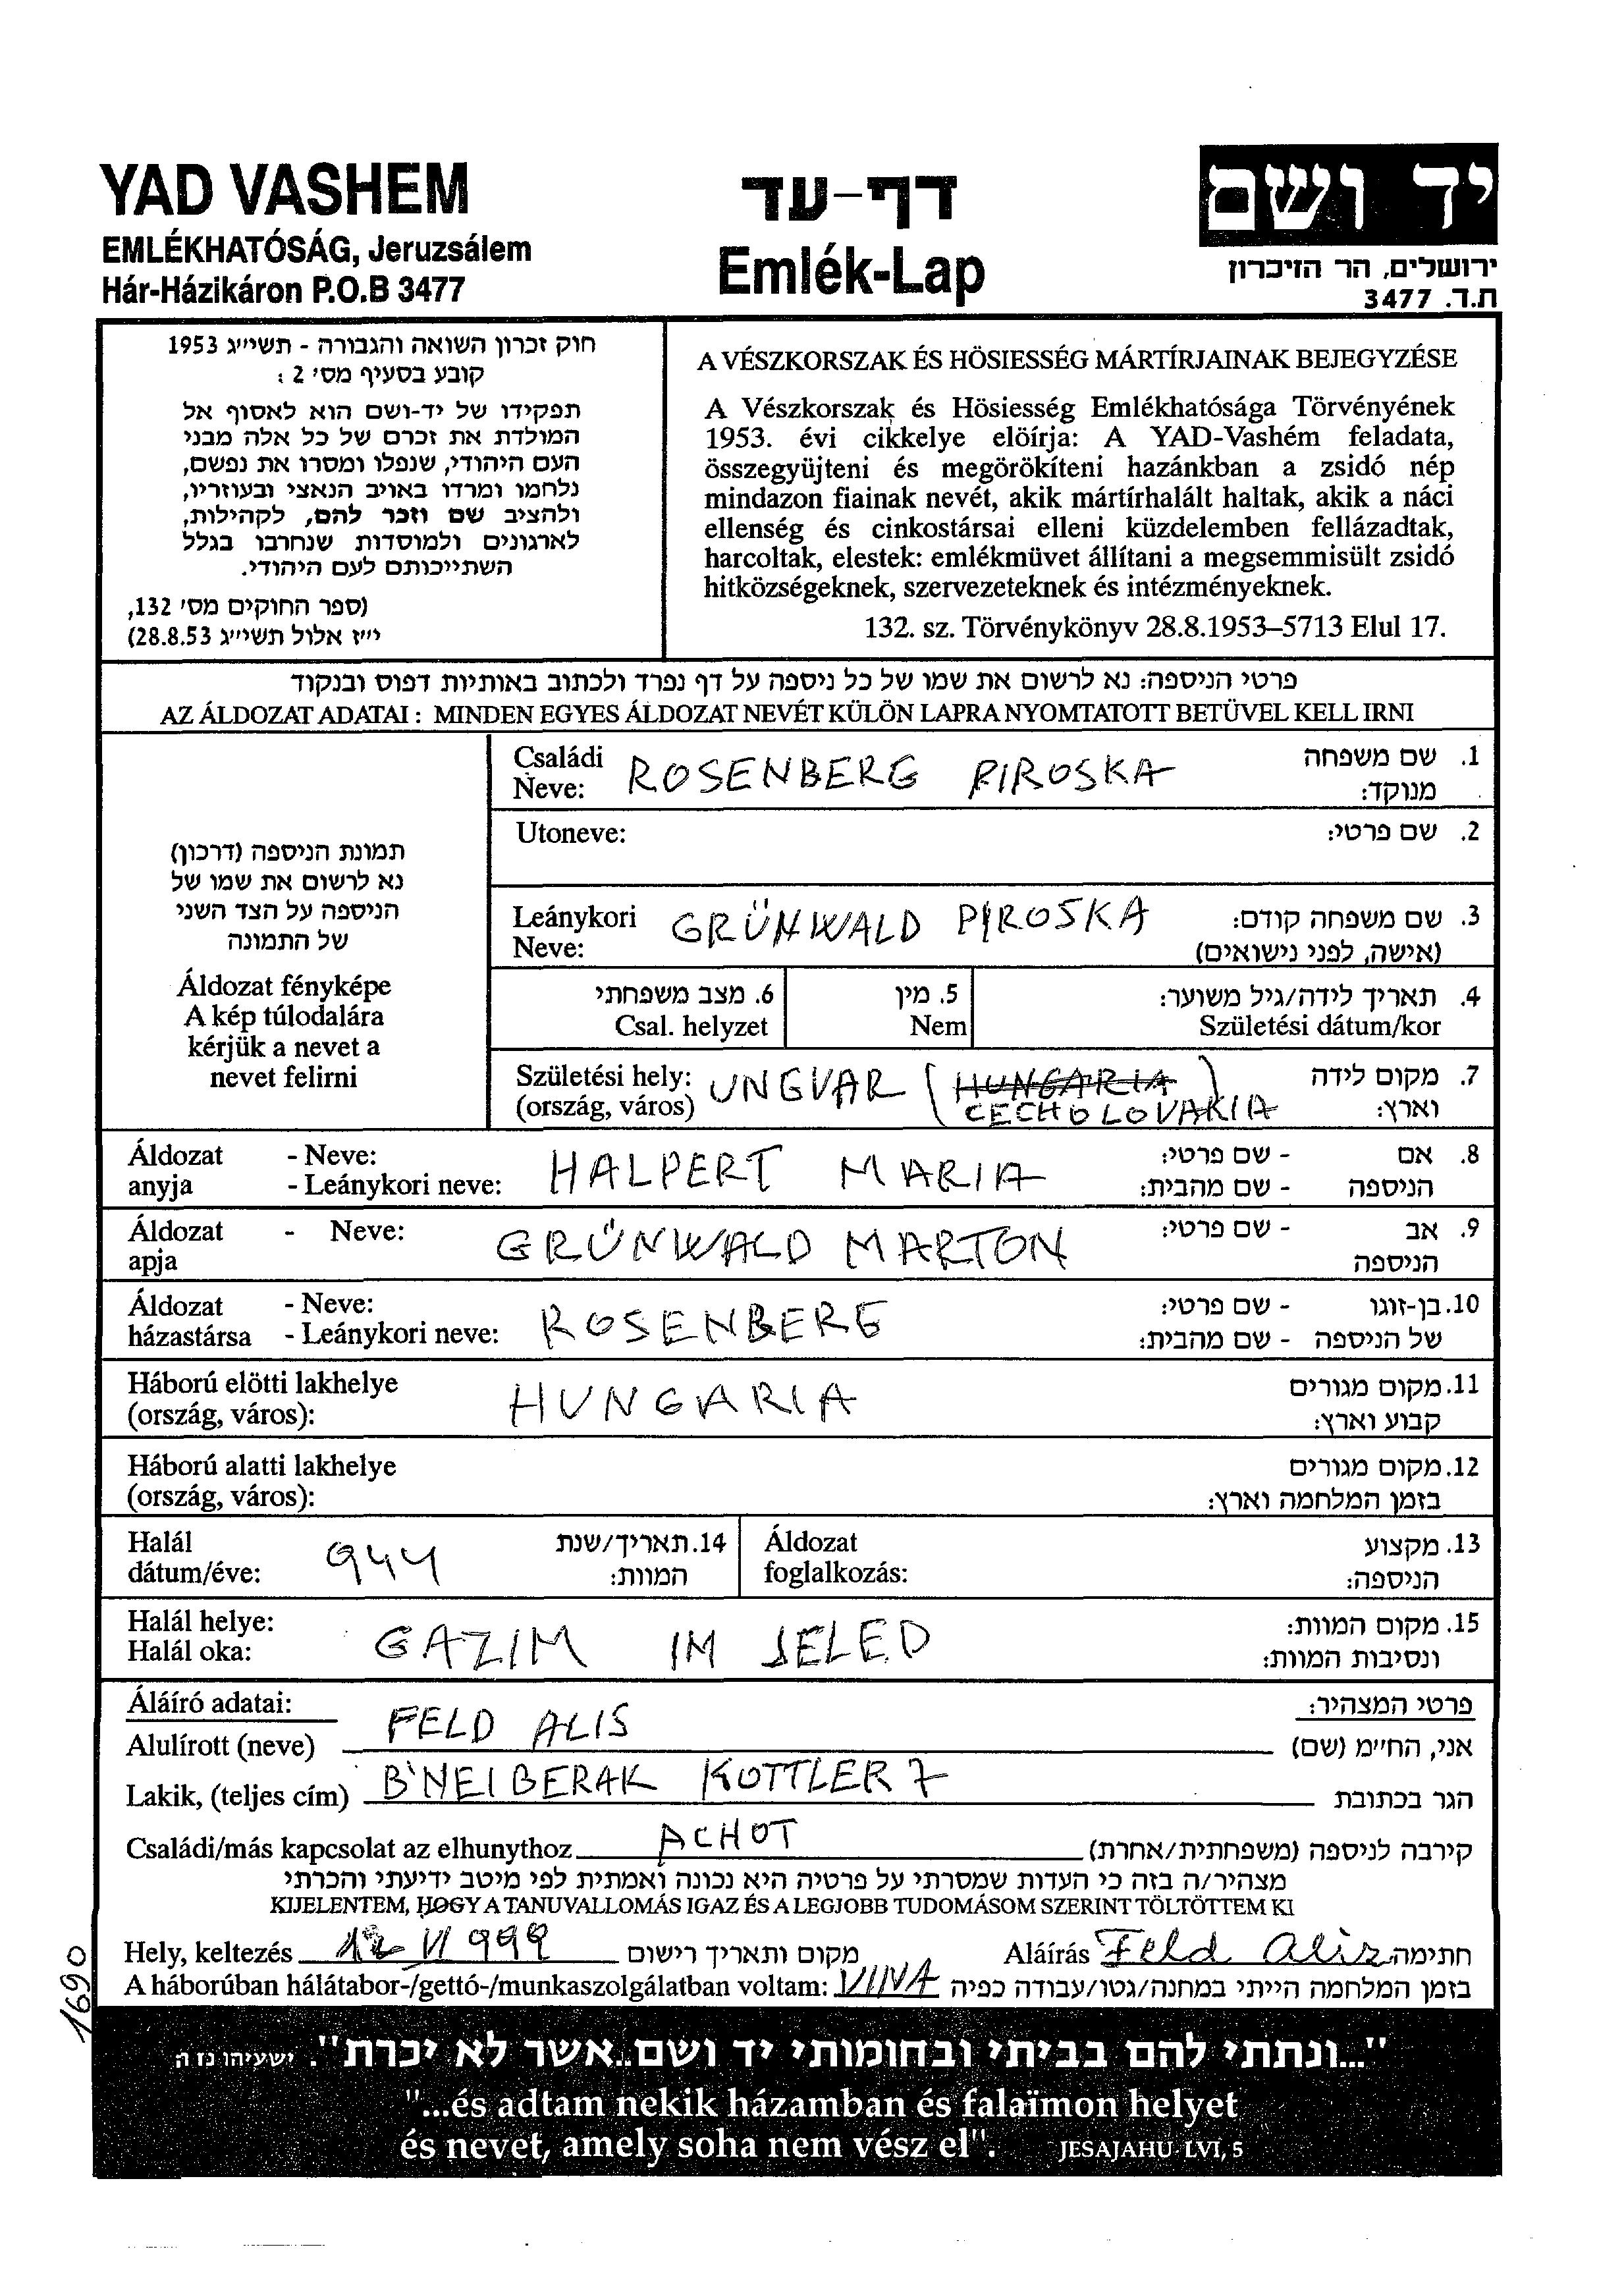 YAD VASHEM
EMLÉKHATÓSÁG, Jeruzsálem
Hár-Házikáron P.O.B 3477
דף-עד
Emlék-Lap
יד ושם
ירושלים, הר הזיכרון
ת.ד. 3477
חוק זכרון השואה והגבורה - תשי״ג 1953
קובע בסעיף מס׳ 2 :
תפקידו של יד-ושם הוא לאסוף אל
המולדת את זכרם של כל אלה מבני
העם היהודי, שנפלו ומסרו את נפשם,
נלחמו ומרדו באויב הנאצי ובעוזריו,
ולהציב שם וזכר להם, לקהילות,
לארגונים ולמוסדות שנחרבו בגלל
השתייכותם לעם היהודי.
(ספר החוקים מס׳ 132,
י״ז אלול תשי״ג 28.8.53)
A VÉSZKORSZAK ÉS HÖSIESSÉG MÁRTÍRJAINAK BEJEGYZÉSE
A Vészkorszak és Hösiesség Emlékhatósága Törvényének
1953. évi cikkelye elöírja: A YAD-Vashém feladata,
összegyüjteni és megörökíteni hazánkban a zsidó nép
mindazon fiainak nevét, akik mártírhalált haltak, akik a náci
ellenség és cinkostársai elleni küzdelemben fellázadtak,
harcoltak, elestek: emlékmüvet állítani a megsemmisült zsidó
hitközségeknek, szervezeteknek és intézményeknek.
132. sz. Törvénykönyv 28.8.1953–5713 Elul 17.
פרטי הניספה: נא לרשום את שמו של כל ניספה על דף נפרד ולכתוב באותיות דפוס ובנקוד
AZ ÁLDOZAT ADATAI : MINDEN EGYES ÁLDOZAT NEVÉT KÜLÖN LAPRA NYOMTATOTT BETÜVEL KELL IRNI
תמונת הניספה (דרכון)
נא לרשום את שמו של
הניספה על הצד השני
של התמונה
Áldozat fényképe
A kép túlodalára
kérjük a nevet a
nevet felirni
Családi ROSENBERG PIROSKA 1. שם משפחה
Neve: מנוקד:
Utoneve: 2. שם פרטי:
Leánykori GRÜNWALD PIROSKA 3. שם משפחה קודם:
Neve: (אישה, לפני נישואים)
6. מצב משפחתי 5. מין 4. תאריך לידה/גיל משוער:
Csal. helyzet Nem Születési dátum/kor
Születési hely: UNGVAR (HUNGARIA) 7. מקום לידה
(ország, város) CECHOLOVAKIA וארץ:
Áldozat - Neve: HALPERT MARIA - שם פרטי: 8. אם
anyja - Leánykori neve: - שם מהבית: הניספה
Áldozat - Neve: GRÜNWALD MARTON - שם פרטי: 9. אב
apja הניספה
Áldozat - Neve: ROSENBERG - שם פרטי: 10. בן-זוגו
házastársa - Leánykori neve: - שם מהבית: של הניספה
Háború elötti lakhelye HUNGARIA 11. מקום מגורים
(ország, város): קבוע וארץ:
Háború alatti lakhelye 12. מקום מגורים
(ország, város): בזמן המלחמה וארץ:
Halál 944 14. תאריך/שנת Áldozat 13. מקצוע
dátum/éve: המוות: foglalkozás: הניספה:
Halál helye: GAZIM IM JELED 15. מקום המוות:
Halál oka: ונסיבות המוות:
Áláíró adatai: פרטי המצהיר:
Alulírott (neve) FELD ALIS אני, החי״מ (שם)
Lakik, (teljes cím) B'NEI BERAK KOTTLER 7 הגר בכתובת
Családi/más kapcsolat az elhunythoz ACHOT קירבה לניספה (משפחתית/אחרת)
מצהיר/ה בזה כי העדות שמסרתי על פרטיה היא נכונה ואמתית לפי מיטב ידיעתי והכרתי
KIJELENTEM, HOGY A TANUVALLOMÁS IGAZ ÉS A LEGJOBB TUDOMÁSOM SZERINT TÖLTÖTTEM KI
Hely, keltezés VI 999 מקום ותאריך רישום Aláírás Feld Aliz חתימה
A háborúban hálátabor-/gettó-/munkaszolgálatban voltam: בזמן המלחמה הייתי במחנה/גטו/עבודה כפיה
1690
"...ונתתי להם בביתי ובחומותי יד ושם..אשר לא יכרת". ישעיהו נז ה
"...és adtam nekik házamban és falaïmon helyet
és nevet, amely soha nem vész el". JESAJAHU LVI, 5